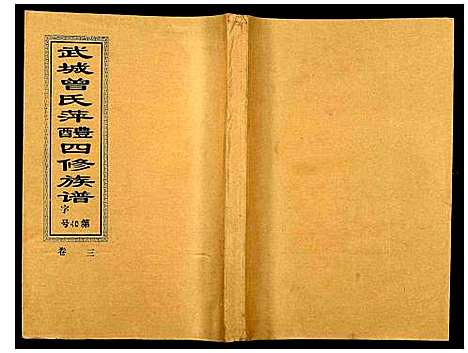 武城曾氏萍醴四修族谱
字
第40号
卷三